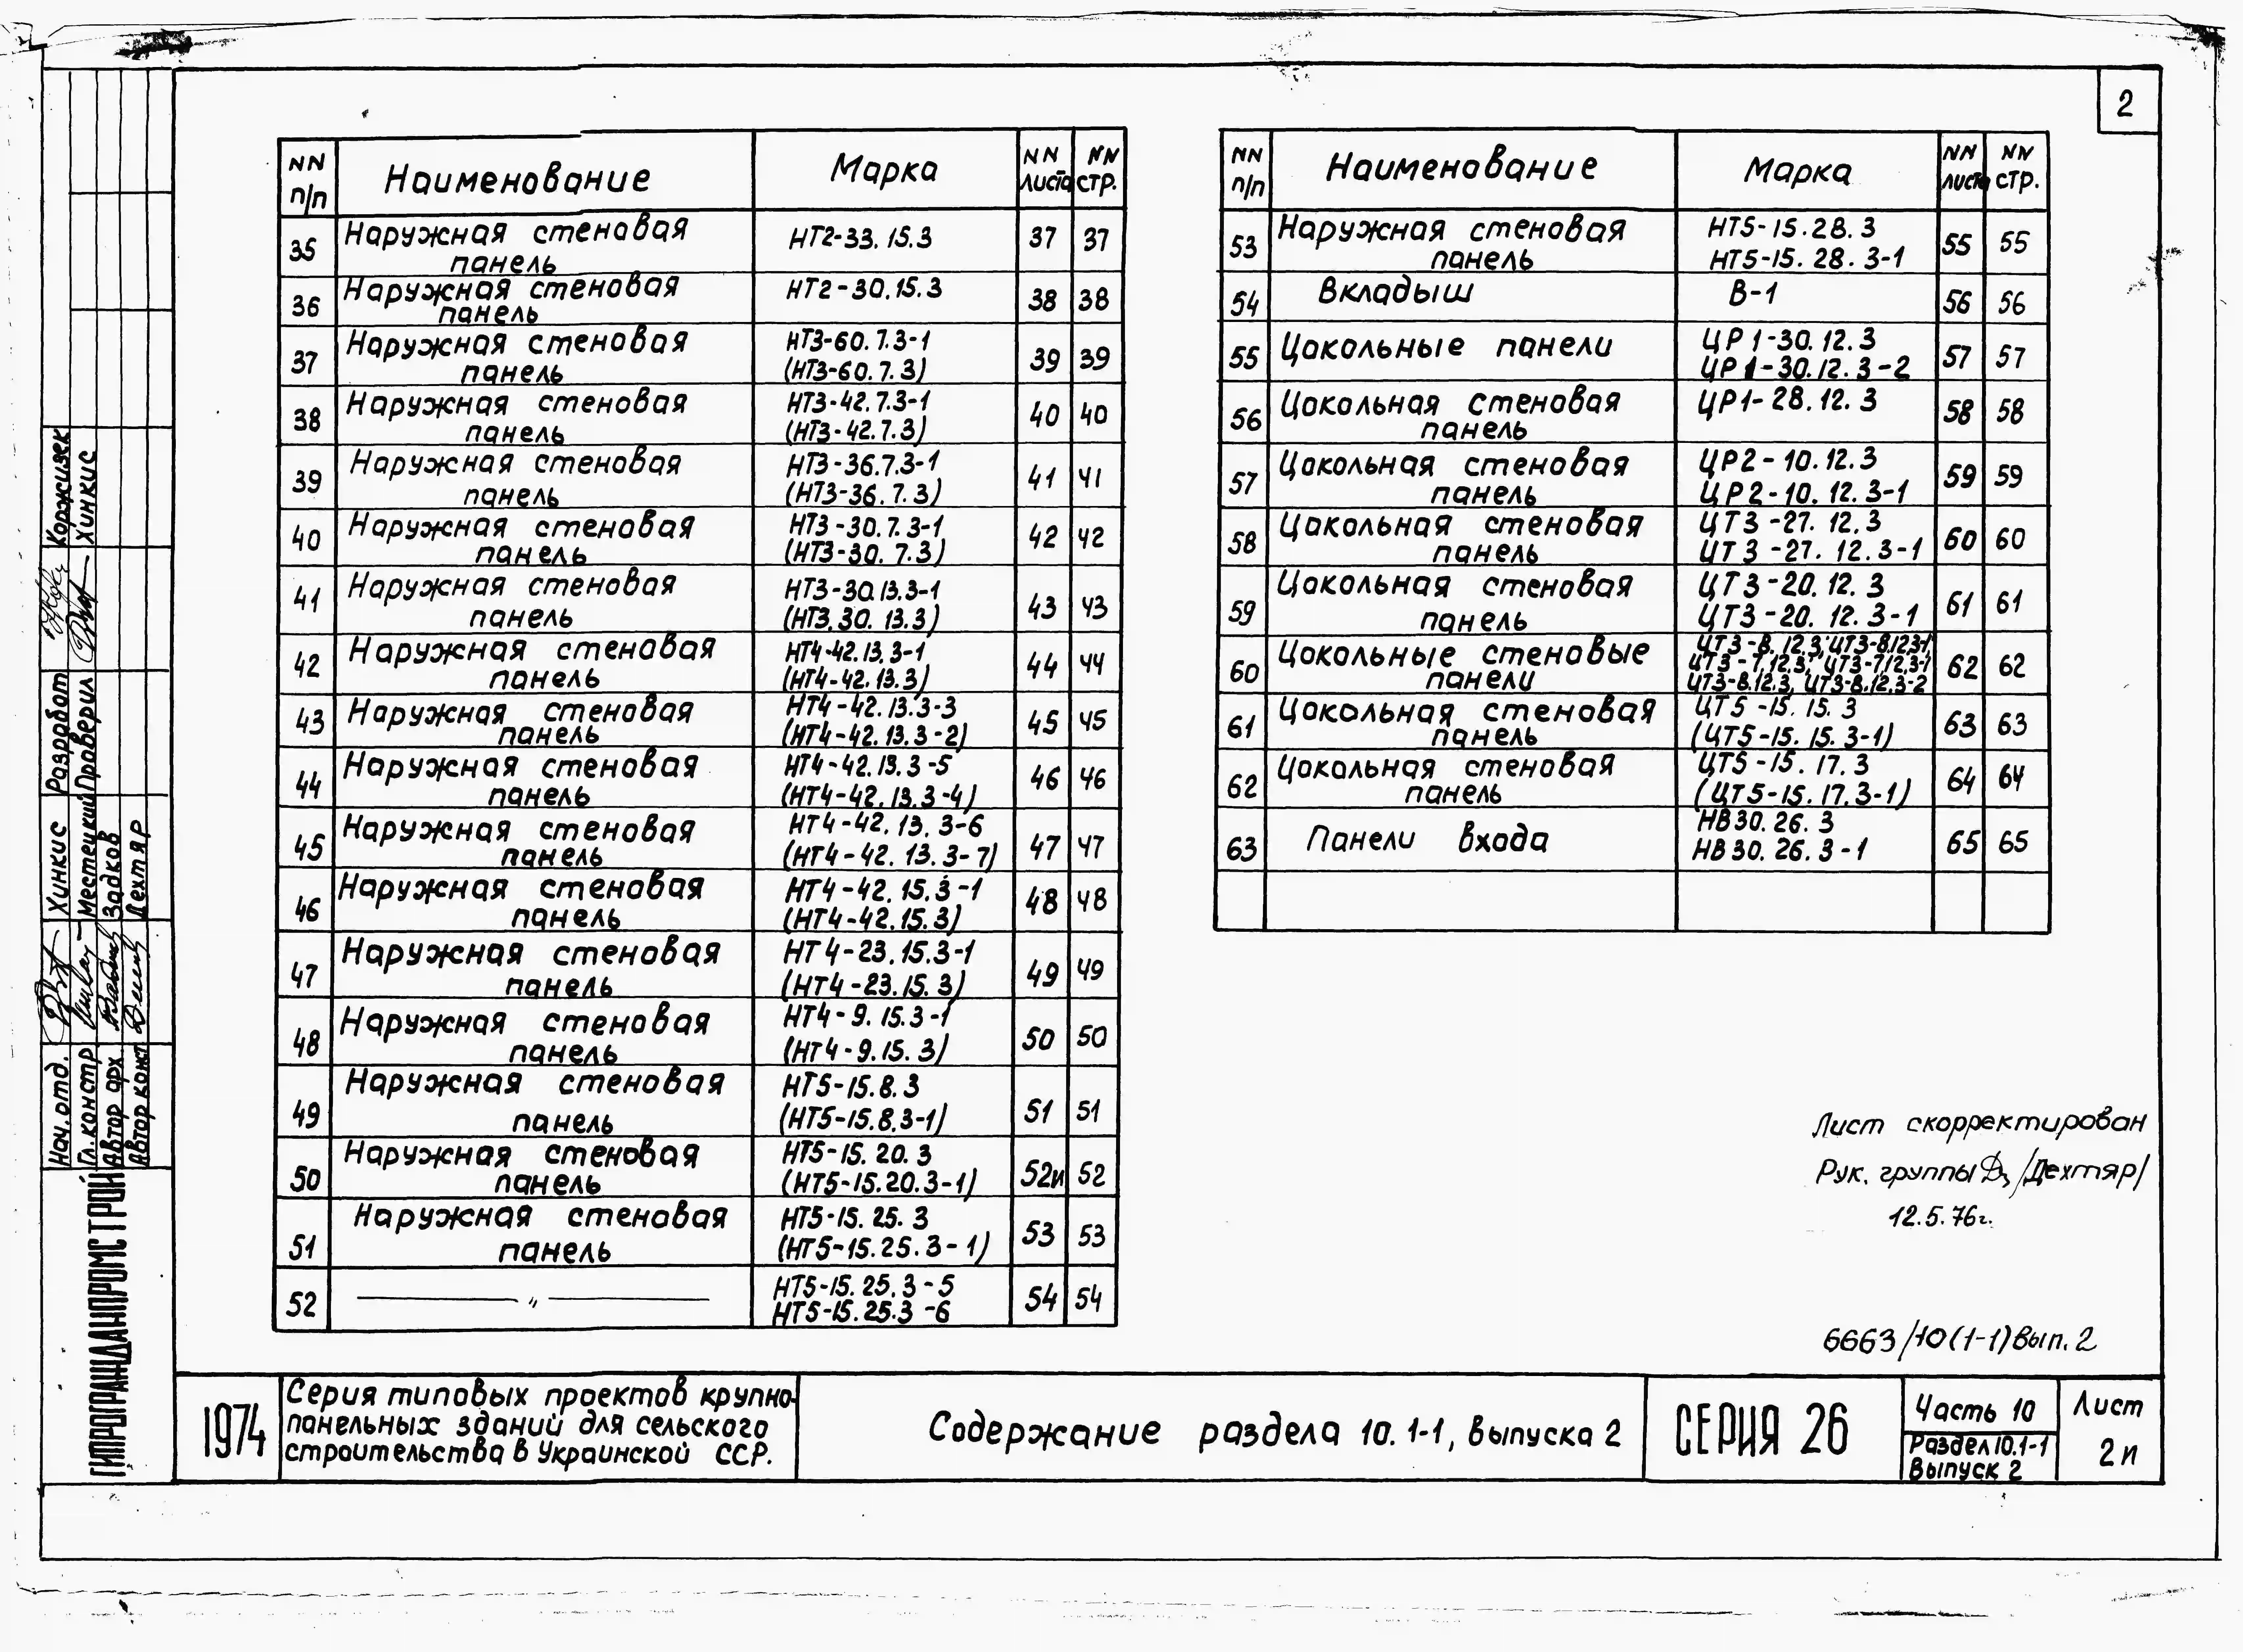 2
NN п/п Наименование Марка NN листа NN стр.
35 Наружная стеновая панель НТ2-33.15.3 37 37
36 Наружная стеновая панель НТ2-30.15.3 38 38
37 Наружная стеновая панель НТ3-60.7.3-1 (НТ3-60.7.3) 39 39
38 Наружная стеновая панель НТ3-42.7.3-1 (НТ3-42.7.3) 40 40
39 Наружная стеновая панель НТ3-36.7.3-1 (НТ3-36.7.3) 41 41
40 Наружная стеновая панель НТ3-30.7.3-1 (НТ3-30.7.3) 42 42
41 Наружная стеновая панель НТ3-30.13.3-1 (НТ3.30.13.3) 43 43
42 Наружная стеновая панель НТ4-42.13.3-1 (НТ4-42.13.3) 44 44
43 Наружная стеновая панель НТ4-42.13.3-3 (НТ4-42.13.3-2) 45 45
44 Наружная стеновая панель НТ4-42.13.3-5 (НТ4-42.13.3-4) 46 46
45 Наружная стеновая панель НТ4-42.13.3-6 (НТ4-42.13.3-7) 47 47
46 Наружная стеновая панель НТ4-42.15.3-1 (НТ4-42.15.3) 48 48
47 Наружная стеновая панель НТ4-23.15.3-1 (НТ4-23.15.3) 49 49
48 Наружная стеновая панель НТ4-9.15.3-1 (НТ4-9.15.3) 50 50
49 Наружная стеновая панель НТ5-15.8.3 (НТ5-15.8.3-1) 51 51
50 Наружная стеновая панель НТ5-15.20.3 (НТ5-15.20.3-1) 52и 52
51 Наружная стеновая панель НТ5-15.25.3 (НТ5-15.25.3-1) 53 53
52 —— " —— НТ5-15.25.3-5 НТ5-15.25.3-6 54 54
NN п/п Наименование Марка NN листа NN стр.
53 Наружная стеновая панель НТ5-15.28.3 НТ5-15.28.3-1 55 55
54 Вкладыш В-1 56 56
55 Цокольные панели ЦР1-30.12.3 ЦР1-30.12.3-2 57 57
56 Цокольная стеновая панель ЦР1-28.12.3 58 58
57 Цокольная стеновая панель ЦР2-10.12.3 ЦР2-10.12.3-1 59 59
58 Цокольная стеновая панель ЦТ3-27.12.3 ЦТ3-27.12.3-1 60 60
59 Цокольная стеновая панель ЦТ3-20.12.3 ЦТ3-20.12.3-1 61 61
60 Цокольные стеновые панели ЦТ3-8.12.3; ЦТ3-8.12.3-1, ЦТ3-7.12.3; ЦТ3-7.12.3-1 ЦТ3-8.12.3, ЦТ3-8.12.3-2 62 62
61 Цокольная стеновая панель ЦТ5-15.15.3 (ЦТ5-15.15.3-1) 63 63
62 Цокольная стеновая панель ЦТ5-15.17.3 (ЦТ5-15.17.3-1) 64 64
63 Панели входа НВ30.26.3 НВ30.26.3-1 65 65
Лист скорректирован
Рук. группы /Дехтяр/
12.5.76г.
6663/10(1-1)Вып.2
1974
Серия типовых проектов крупно-
панельных зданий для сельского
строительства в Украинской ССР.
Содержание раздела 10.1-1, выпуска 2
СЕРИЯ 26
Часть 10
Раздел 10.1-1
Выпуск 2
Лист
2и
ГИПРОГРАЖДАНПРОМСТРОЙ
Нач.отд. Хинкис Разработ Коржизек
Гл.констр Местецкий Проверил Хинкис
Автор арх Задков
Автор конст Дехтяр